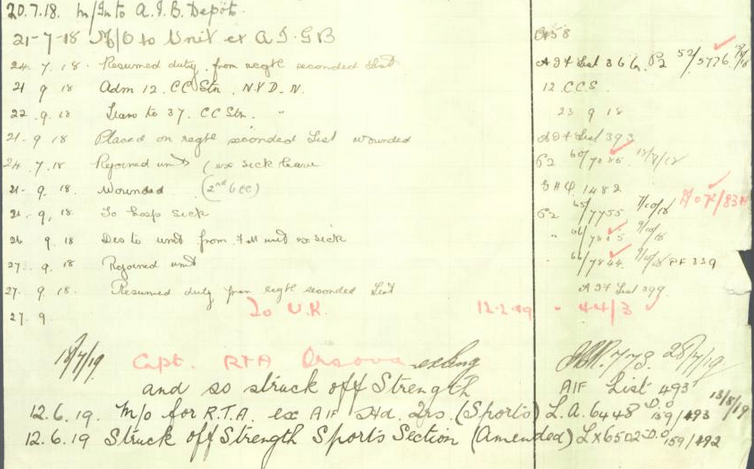 20.7.18. M/In to A.I.B. Depôt.
21-7-18 M/O to Unit ex A.I.G.B
24.7.18. Resumed duty from regtl seconded List A I F List 366 P2 52/5776
21 9 18 Adm 12. CC Stn. N.Y.D.N. 12.CCS.
22.9.18. Trans to 37. CC Stn. " 23 9 18
21.9 18 Placed on regtl seconded List wounded A I F List 393
24.7.18 Rejoined unit (ex sick leave P2
21.9.18. Wounded (2nd occ) 1482
21.9.18 To Hosp sick P2 65/7755 7/10/18
26 9.18 Dis to unit from ex sick " 66/7815 9/10/18
27.9.18. Rejoined unit " 66/7844 9/10/18 PF 339
27.9.18. Resumed duty from regtl seconded List A I F List 399
27.9 To U.K. 12.2.19 - 44/3
18/7/19 Capt. RTA per 778. 28/7/19
and so struck off Strength AIF List 493
12.6.19. M/O for R.T.A. ex AIF Hd. Qrs. (Sports) L.A. 6448 D.O 159/493 13/8/19
12.6.19 Struck off Strength Sports Section (Amended) LX6502 D.O 159/492